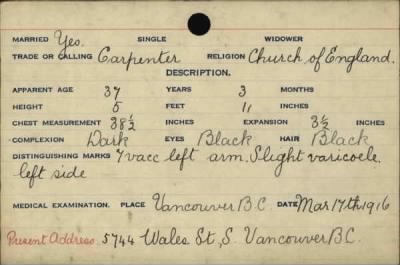 MARRIED Yes. SINGLE WIDOWER
TRADE OR CALLING Carpenter RELIGION Church of England.
DESCRIPTION.
APPARENT AGE 37 YEARS 3 MONTHS
HEIGHT 5 FEET 11 INCHES
CHEST MEASUREMENT 38½ INCHES EXPANSION 3½ INCHES
COMPLEXION Dark EYES Black HAIR Black
DISTINGUISHING MARKS 7 vacc left arm. Slight varicoele.
left side
MEDICAL EXAMINATION. PLACE Vancouver B.C. DATE Mar 17th 1916
Present Address. 5744 Wales St, S. Vancouver B.C.